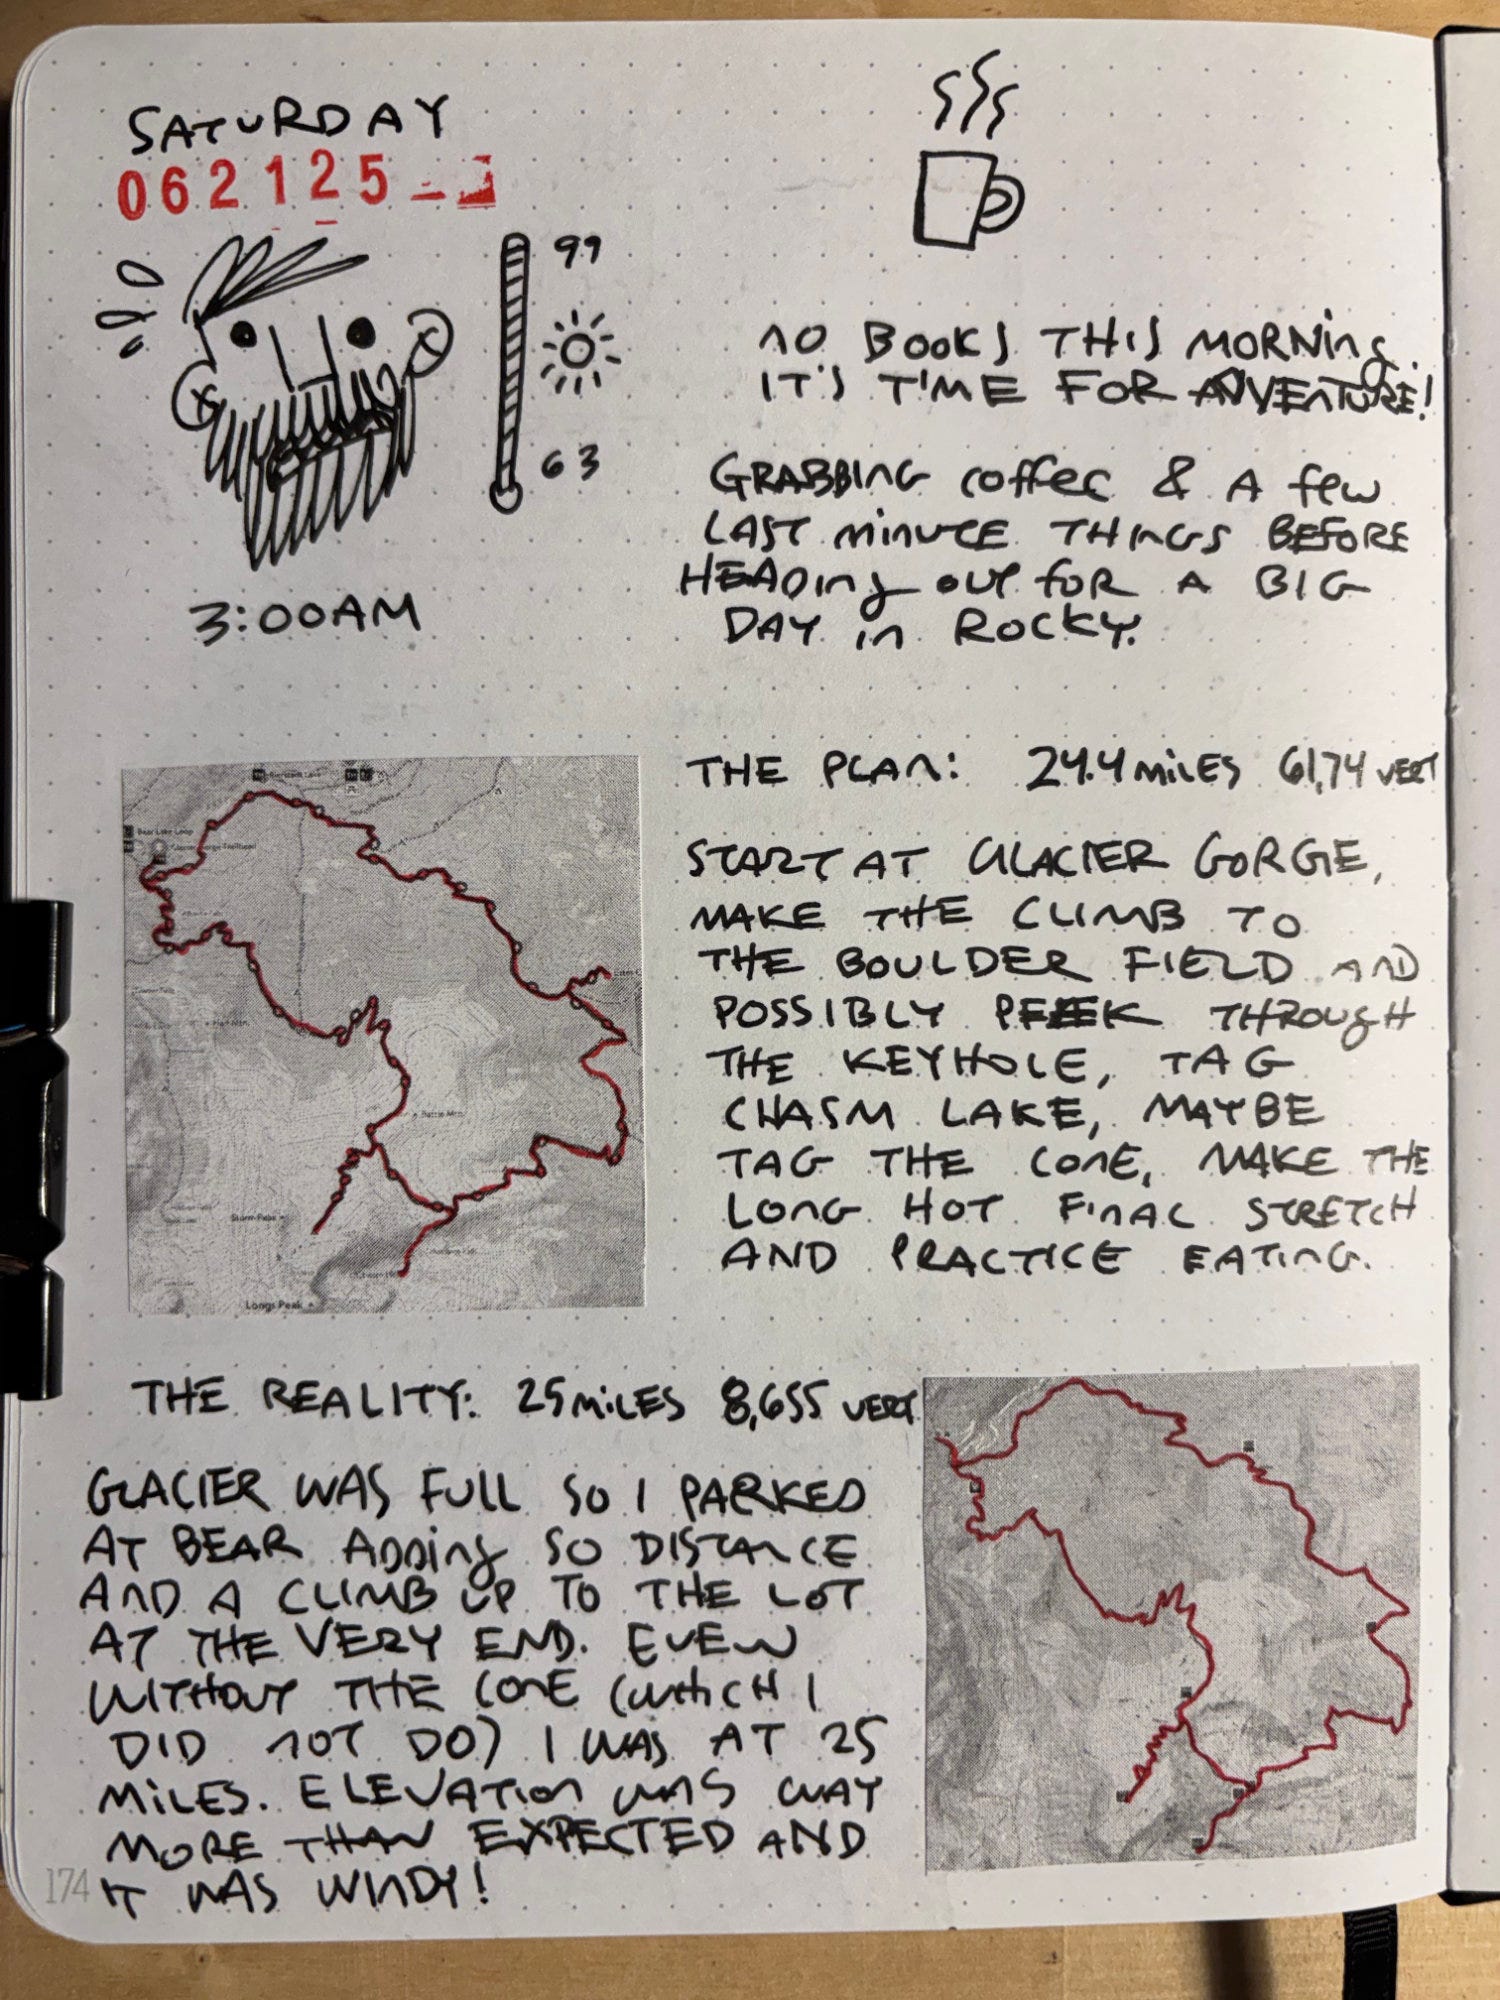 SATURDAY
062125
99
63
3:00AM
NO BOOKS THIS MORNING.
IT'S TIME FOR ADVENTURE!
GRABBING COFFEE & A FEW
LAST MINUTE THINGS BEFORE
HEADING OUT FOR A BIG
DAY IN ROCKY.
THE PLAN: 24.4 MILES 61,74 VERT
START AT GLACIER GORGE,
MAKE THE CLIMB TO
THE BOULDER FIELD AND
POSSIBLY PEEK THROUGH
THE KEYHOLE, TAG
CHASM LAKE, MAYBE
TAG THE CONE, MAKE THE
LONG HOT FINAL STRETCH
AND PRACTICE EATING.
Bear Lake Loop
Battle Mtn.
Storm Peak
Longs Peak
THE REALITY: 25 MILES 8,655 VERT
GLACIER WAS FULL SO I PARKED
AT BEAR ADDING SO DISTANCE
AND A CLIMB UP TO THE LOT
AT THE VERY END. EVEN
WITHOUT THE CONE (WHICH I
DID NOT DO) I WAS AT 25
MILES. ELEVATION WAS WAY
MORE THAN EXPECTED AND
IT WAS WINDY!
174